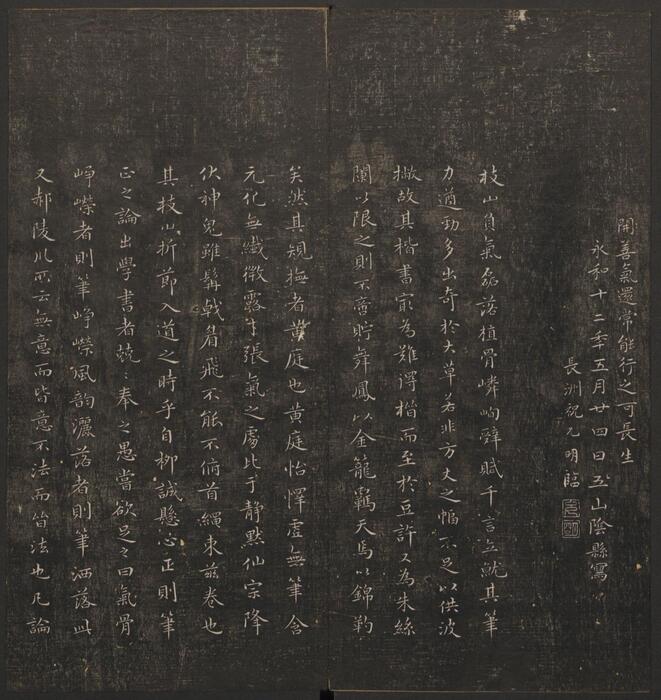 閒善氣還常能行之可長生
永和十二年五月廿四日五山陰縣寫
長洲祝允明臨
枝山負氣磊落植骨嶙峋辟賦千言立就其筆
力遒勁多出奇於大草若非方丈之幅不足以供波
撇故其楷書寂為難得楷而至於豆許又為朱絲
闌以限之則不啻貯舞鳳以金籠羈天馬以錦靮
矣然其規撫者黃庭也黃庭怡懌虛無筆含
元化無纖微露才張氣之處此于靜默仙宗降
伏神鬼雖髯戟眉飛不能不俯首繩束茲卷也
其枝山折節入道之時乎自柳誠懸心正則筆
正之論出學書者兢奉之愚當欲足之曰氣骨
崢嶸者則筆崢嶸風韵灑落者則筆洒落此
又郝陵川所云無意而皆意不法而皆法也凡論